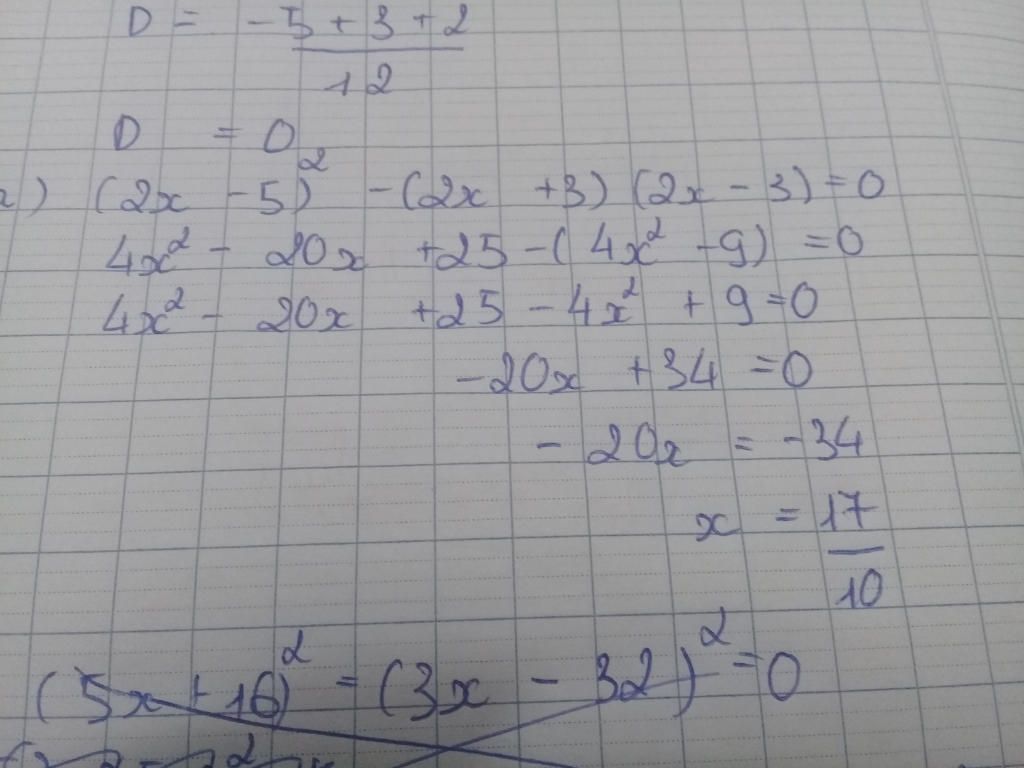 D = -5 + 3 + 2
12
D = 0
2) (2x - 5)² - (2x + 3) (2x - 3) = 0
4x² - 20x + 25 - (4x² - 9) = 0
4x² - 20x + 25 - 4x² + 9 = 0
-20x + 34 = 0
- 20x = -34
x = 17
10
(5x + 16)² = (3x - 32)² = 0